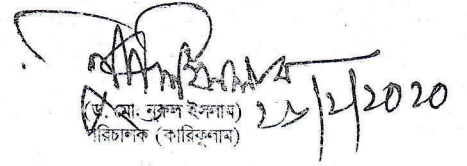 ২৮/২/2020
(ড. মো. নুরুল ইসলাম)
পরিচালক (কারিকুলাম)